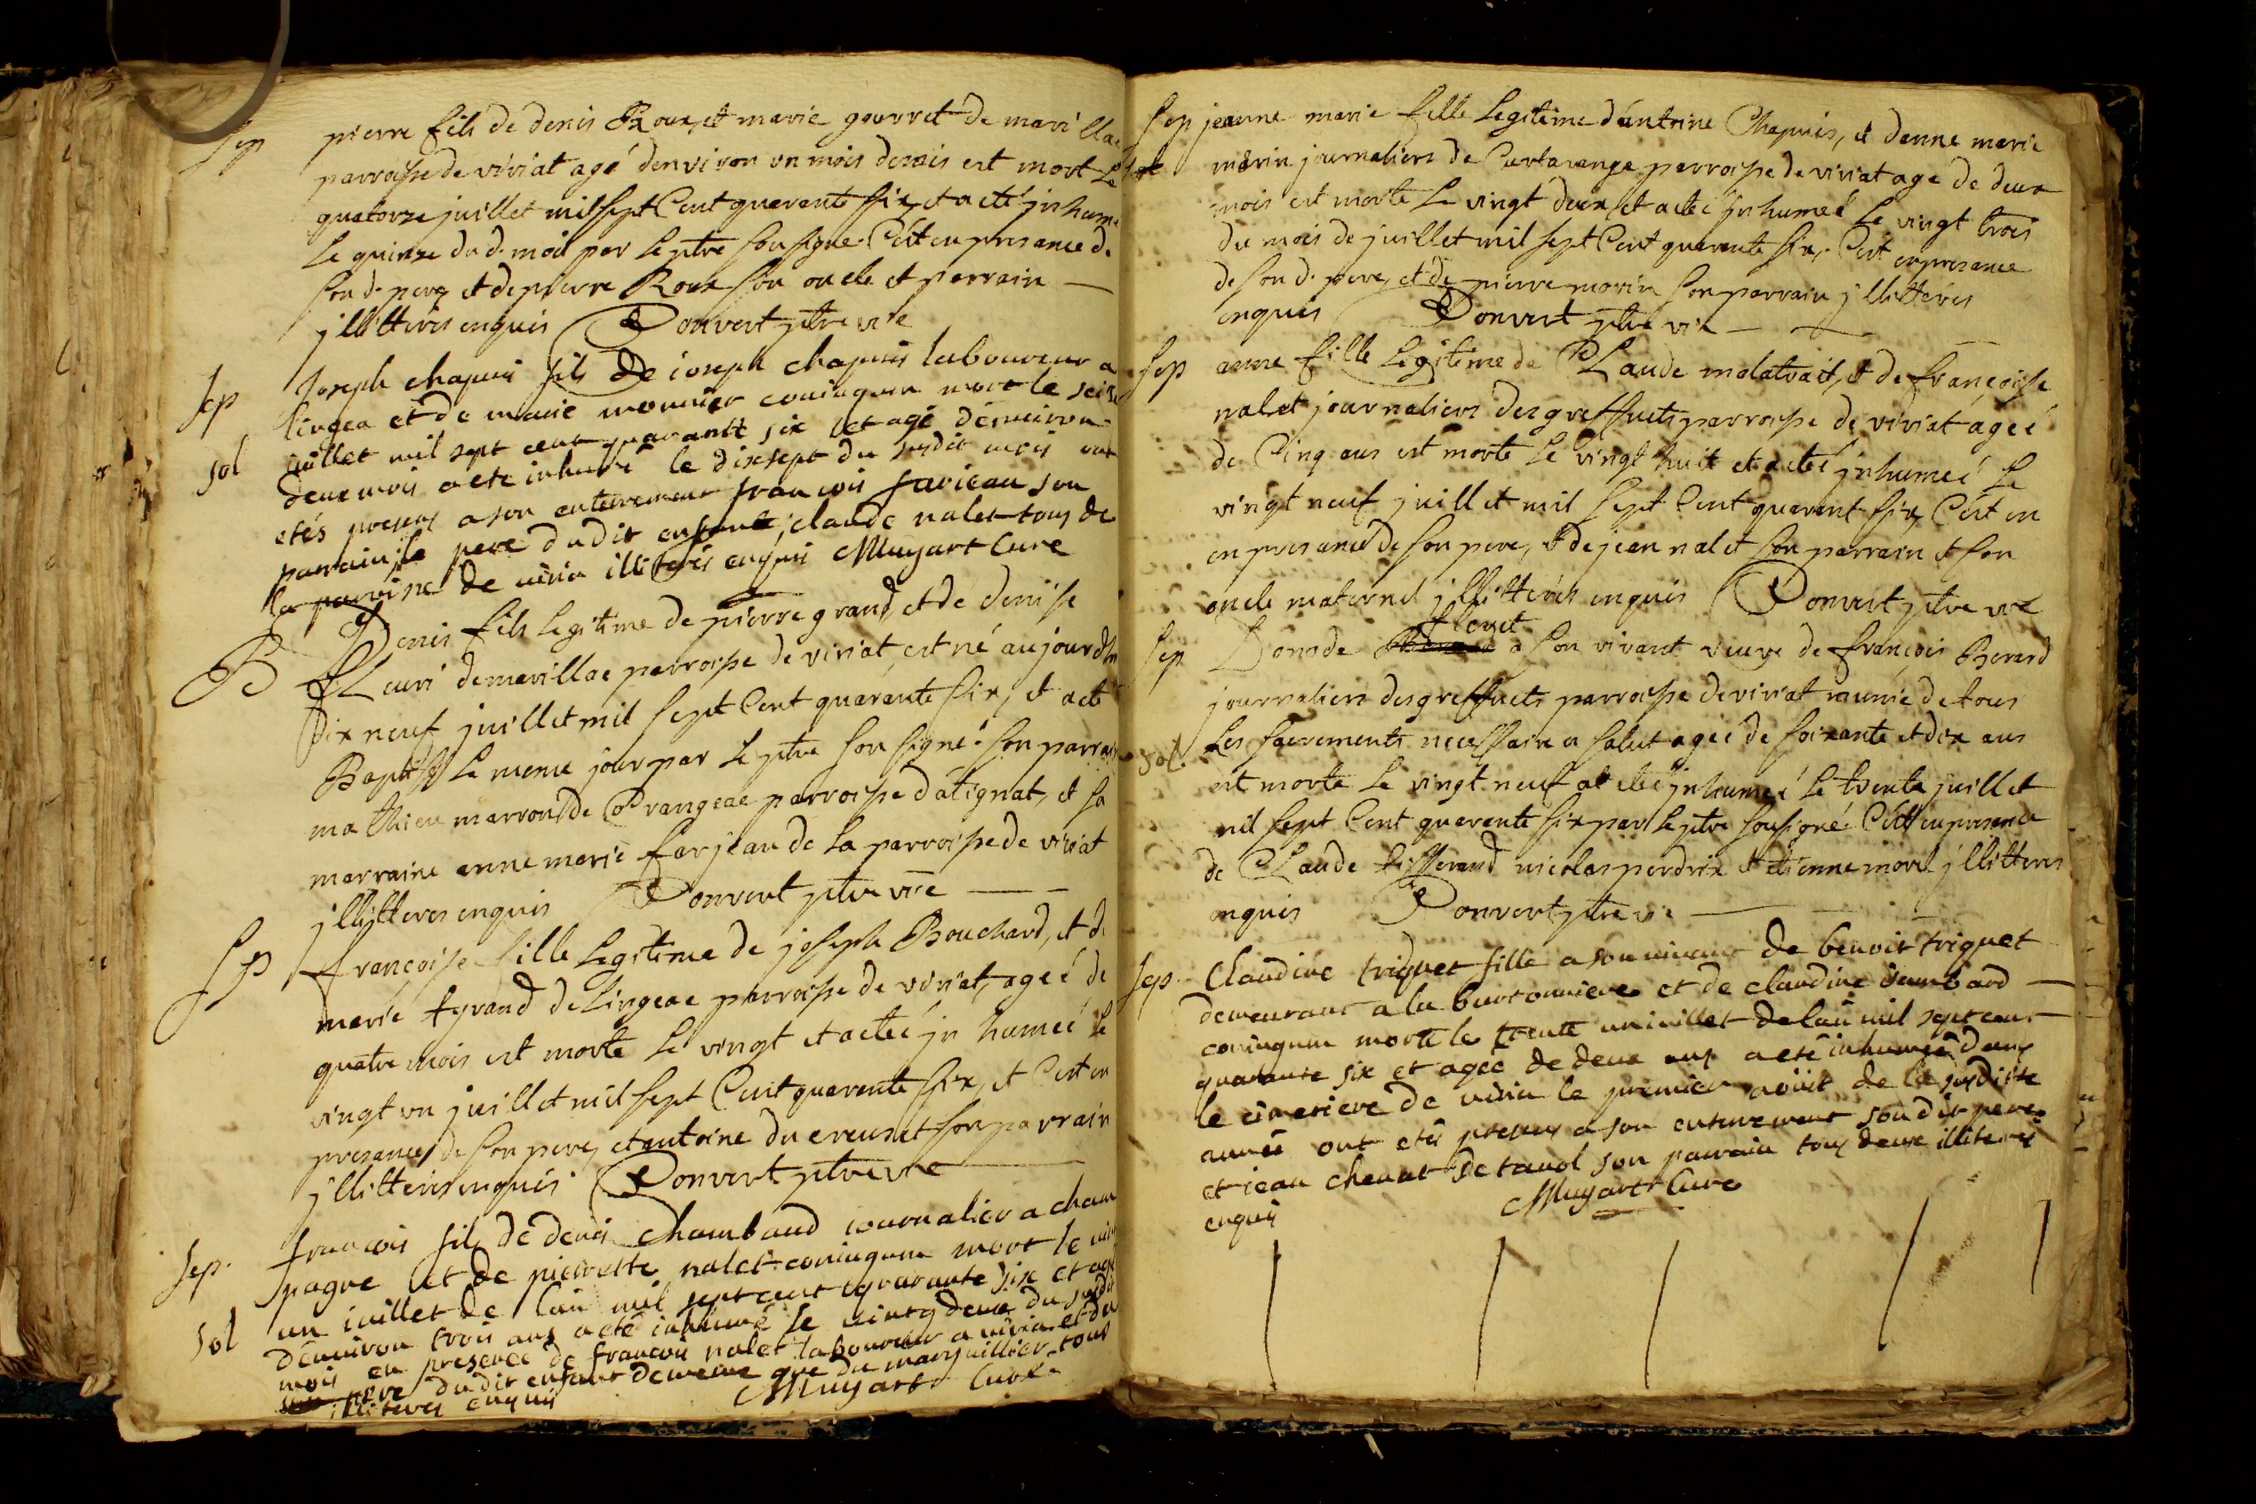 Sep pierre fils de denis Roux, et marie gourret de marillac
parroisse de viriat agé d'environ un mois demis est mort Le
quatorze juillet mil sept Cent quarente six, et a eté jnhumé
Le quinze du d. mois par Le ptre soussigné. C'est en presance de
son d. pere, et de pierre Roux son oncle et parrain —
jllitteres enquis Convert ptre vre
Sep Joseph chapuis fils de ioseph chapuis laboureur a
lingea et de marie monnier coniugum mort le seize
sol iuillet mil sept cent quarante six et agé denuiron
deux mois a ete inhumé le dixsept du susdit mois ont
etés presens a son enterrement francois farieau son
parrain, le pere dudit enfant, claude nalet tous de
la paroisse de uiria illiteres enquis Muyart Cure
B Denis fils Legitime de pierre grand, et de denise
fleuri de marillac parroisse de viriat, est né aujourdhui
dix neuf juillet mil sept Cent quarente six, et a eté
Baptisé Le meme jour par Le ptre soussigné. son parrain
mathieu marron de Orangeac parroisse d'atignat, et sa
marraine anne marie farjeau de La parroisse de viriat
jllitteres enquis Convert ptre vre —
Sep francoise fille Legitime de joseph Bouchard, et de
marie grand de Lingeac parroisse de viriat, agée de
quatre mois est morte Le vingt et a eté jnhumeé Le
vingt un juillet mil sept Cent quarente six, et C'est en
presance de son pere, et antoine du creuset son parrain
jllitteres enquis Convert ptre vre
Sep. francois fils de denis chambaud iournalier a cham
pagne et de pierrette nalet coniugum mort le uint
sol un iuillet de lan mil sept cent quarante six et agé
denuiron trois ans a eté inhumé le uintg deux du susdit
mois en presence de francois nalet laboureur a uiria et du
pere dudit enfant dememe que du marguillier tous
illiteres enquis Muyart Cure
Sep jeanne marie fille Legitime d'antoine Chapuis, et d'anne marie
morin journaliers de Curtarange parroisse de viriat age de deux
mois est morte Le vingt deux et a eté jnhumeé Le vingt trois
du mois de juillet mil sept Cent quarente six, C'est en presance
de son d. pere, et de pierre morin son parrain jllitteres
enquis Convert ptre vre —
Sep anne fille Legitime de Claude malatrait, et de françoise
nalet journaliers des greffiets parroisse de viriat ageé
de Cinq ans est morte Le vingt huit et a eté jnhumeé Le
vingt neuf juillet mil sept Cent quarent six, C'est en
en presance de son pere, et de jean nalet son parrain et son
oncle maternel jllitteres enquis Convert ptre vre
floret
Sep Donade a son vivant veuve de françois Berard
journaliers des greffiets parroisse de viriat munie de tous
sol. Les sacrements necessaire a salut ageé de soixante et dix ans
est morte Le vingt neuf et a eté jnhumeé Le trente juillet
mil sept Cent quarente six par Le ptre soussigné. C'est en presance
de Claude tisserand nicolas perdrix et etienne morel jllitteres
enquis Convert ptre vre —
Sep. Claudine triquet fille a son uiuant de benoit triquet
demeurant a la bursonniere et de claudine iambard —
coniugum morte le trente un iuillet de lan mil sept cent
quarante six et agée de deux ans a eté inhumée dans
le cimetiere de uiria le premier aoust de la susditte
année ont etés presens a son enterrement son dit pere
et iean chenat de tanol son parrain tous deux illiteres
enquis Muyart Cure